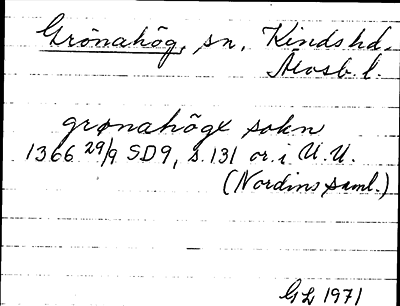 Grönahög, sn, Kinds hd.
Älvsb. l.
grønahöghe sokn
1366 29/9 SD9, s. 131 or. i U.U.
(Nordins saml.)
GL 1971